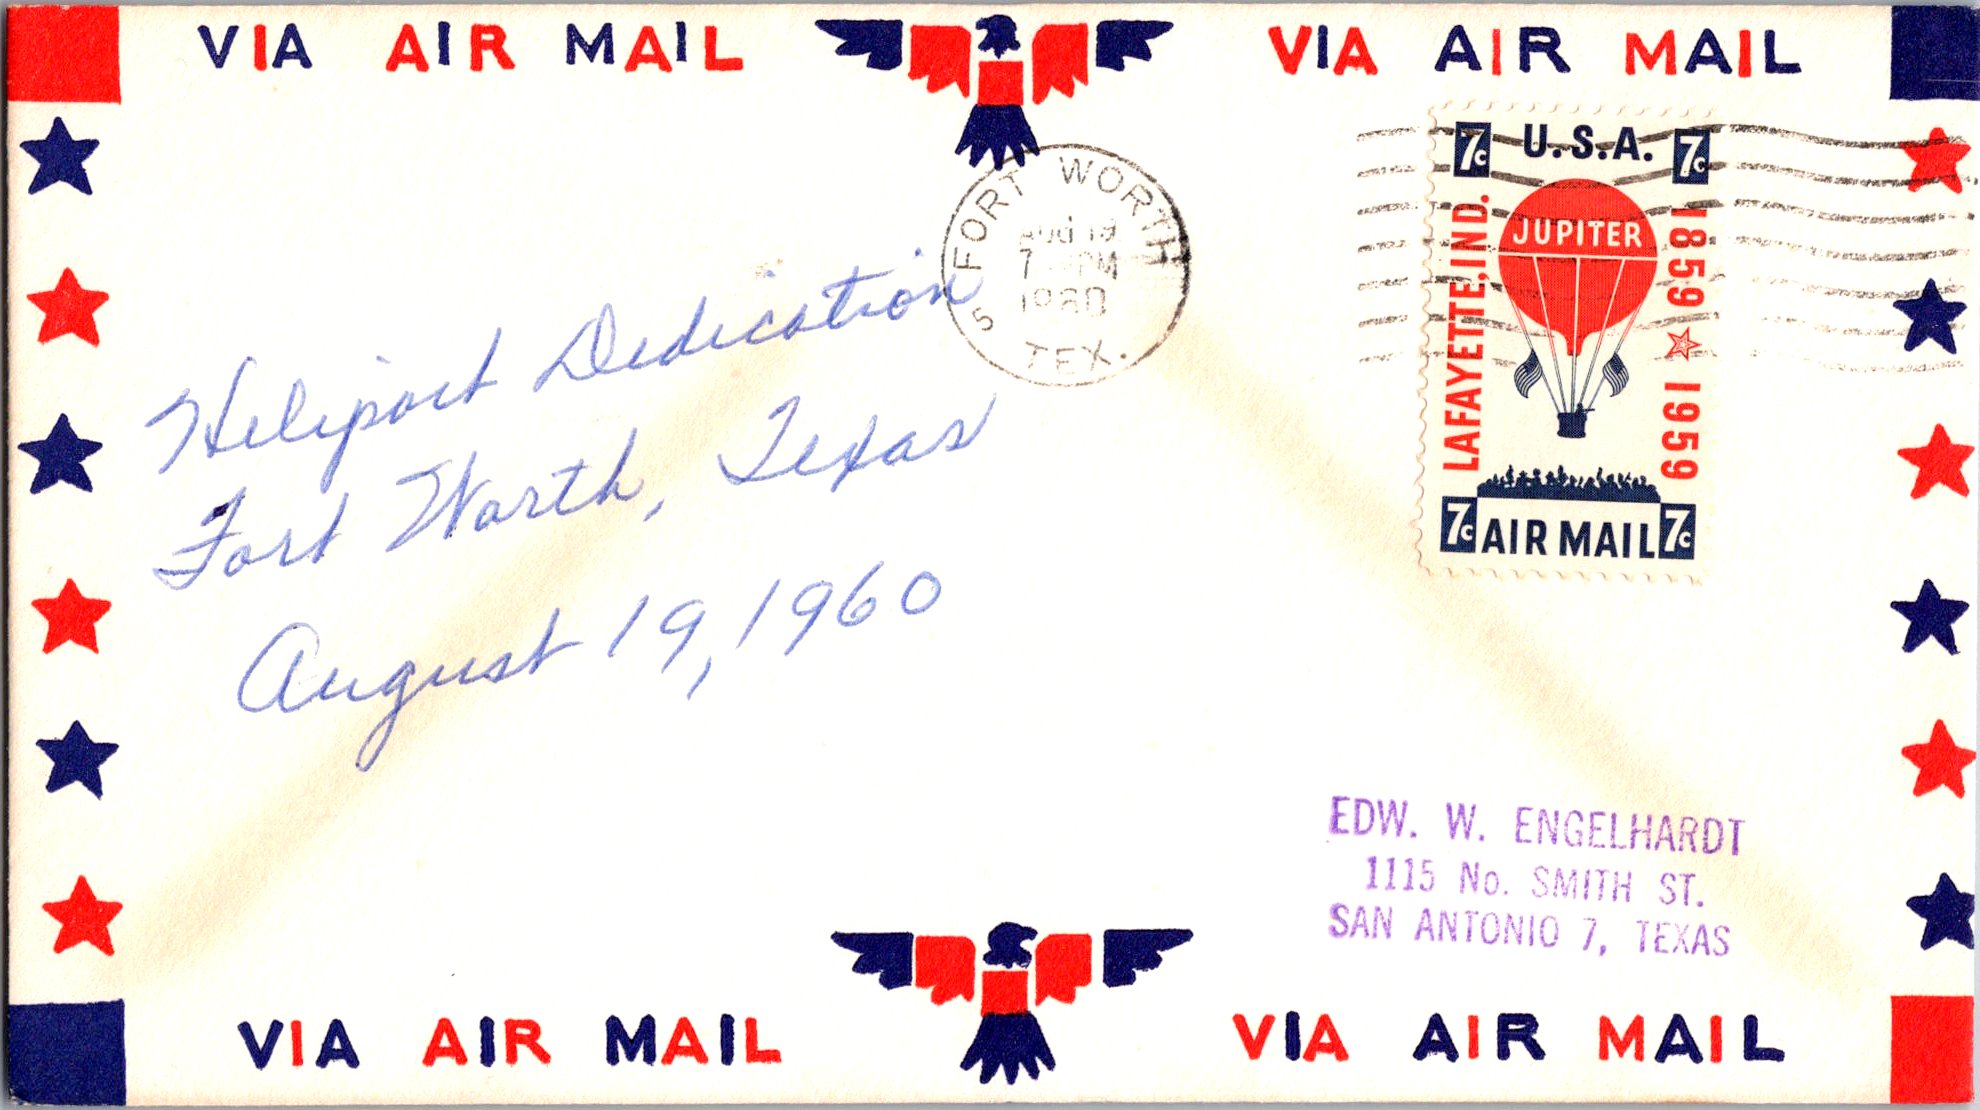 VIA AIR MAIL VIA AIR MAIL
FORT WORTH
AUG 19
7 PM
1960
5 TEX.
7c U.S.A. 7c
JUPITER
LAFAYETTE, IND.
1859 ★ 1959
7c AIR MAIL 7c
Heliport Dedication
Fort Worth, Texas
August 19, 1960
EDW. W. ENGELHARDT
1115 No. SMITH ST.
SAN ANTONIO 7, TEXAS
VIA AIR MAIL VIA AIR MAIL